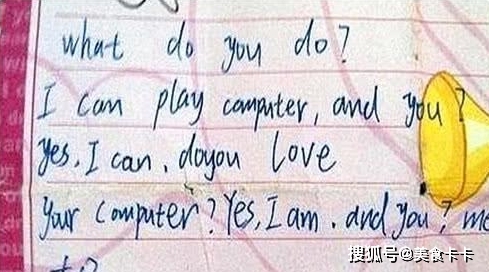 what do you do?
I can play computer, and you?
yes, I can. doyou love
your computer? Yes, I am. and you? me
to?
搜狐号@美食卡卡